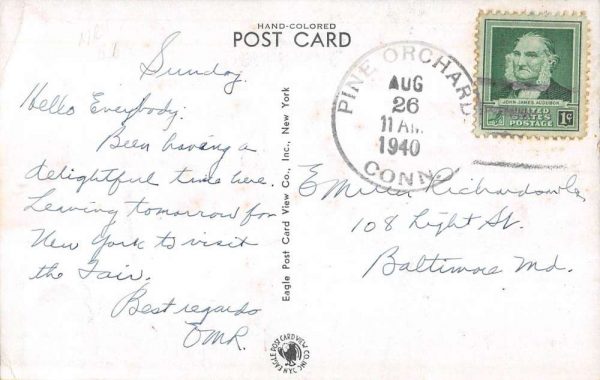 HAND-COLORED
POST CARD
Sunday.
Hello Everybody:
Been having a
delightful time here.
Leaving tomorrow for
New York to visit
the Fair.
Best regards
EMR.
Eagle Post Card View Co., Inc., New York
EAGLE POST CARD VIEW CO. INC. N.Y.C.
PINE ORCHARD
AUG
26
11 AM
1940
CONN.
JOHN JAMES AUDUBON
UNITED
STATES
POSTAGE
1¢
E Miller Richardson
108 Light St.
Baltimore Md.